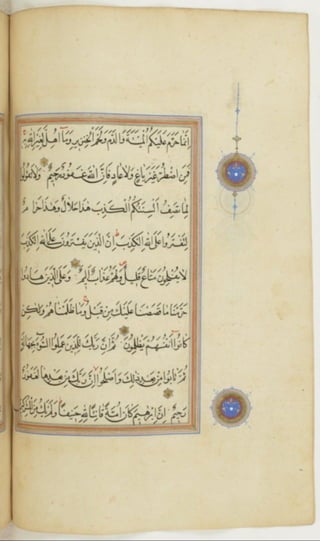 إِنَّمَا حَرَّمَ عَلَيْكُمُ الْمَيْتَةَ وَالدَّمَ وَلَحْمَ الْخِنْزِيرِ وَمَا أُهِلَّ لِغَيْرِ اللَّهِ بِهِ
فَمَنِ اضْطُرَّ غَيْرَ بَاغٍ وَلَا عَادٍ فَإِنَّ اللَّهَ غَفُورٌ رَحِيمٌ وَلَا تَقُولُوا
لِمَا تَصِفُ أَلْسِنَتُكُمُ الْكَذِبَ هَذَا حَلَالٌ وَهَذَا حَرَامٌ
لِتَفْتَرُوا عَلَى اللَّهِ الْكَذِبَ إِنَّ الَّذِينَ يَفْتَرُونَ عَلَى اللَّهِ الْكَذِبَ
لَا يُفْلِحُونَ مَتَاعٌ قَلِيلٌ وَلَهُمْ عَذَابٌ أَلِيمٌ وَعَلَى الَّذِينَ هَادُوا
حَرَّمْنَا مَا قَصَصْنَا عَلَيْكَ مِنْ قَبْلُ وَمَا ظَلَمْنَاهُمْ وَلَكِنْ
كَانُوا أَنْفُسَهُمْ يَظْلِمُونَ ثُمَّ إِنَّ رَبَّكَ لِلَّذِينَ عَمِلُوا السُّوءَ بِجَهَالَةٍ
ثُمَّ تَابُوا مِنْ بَعْدِ ذَلِكَ وَأَصْلَحُوا إِنَّ رَبَّكَ مِنْ بَعْدِهَا لَغَفُورٌ
رَحِيمٌ إِنَّ إِبْرَهِيمَ كَانَ أُمَّةً قَانِتًا لِلَّهِ حَنِيفًا وَلَمْ يَكُ مِنَ الْمُشْرِكِينَ